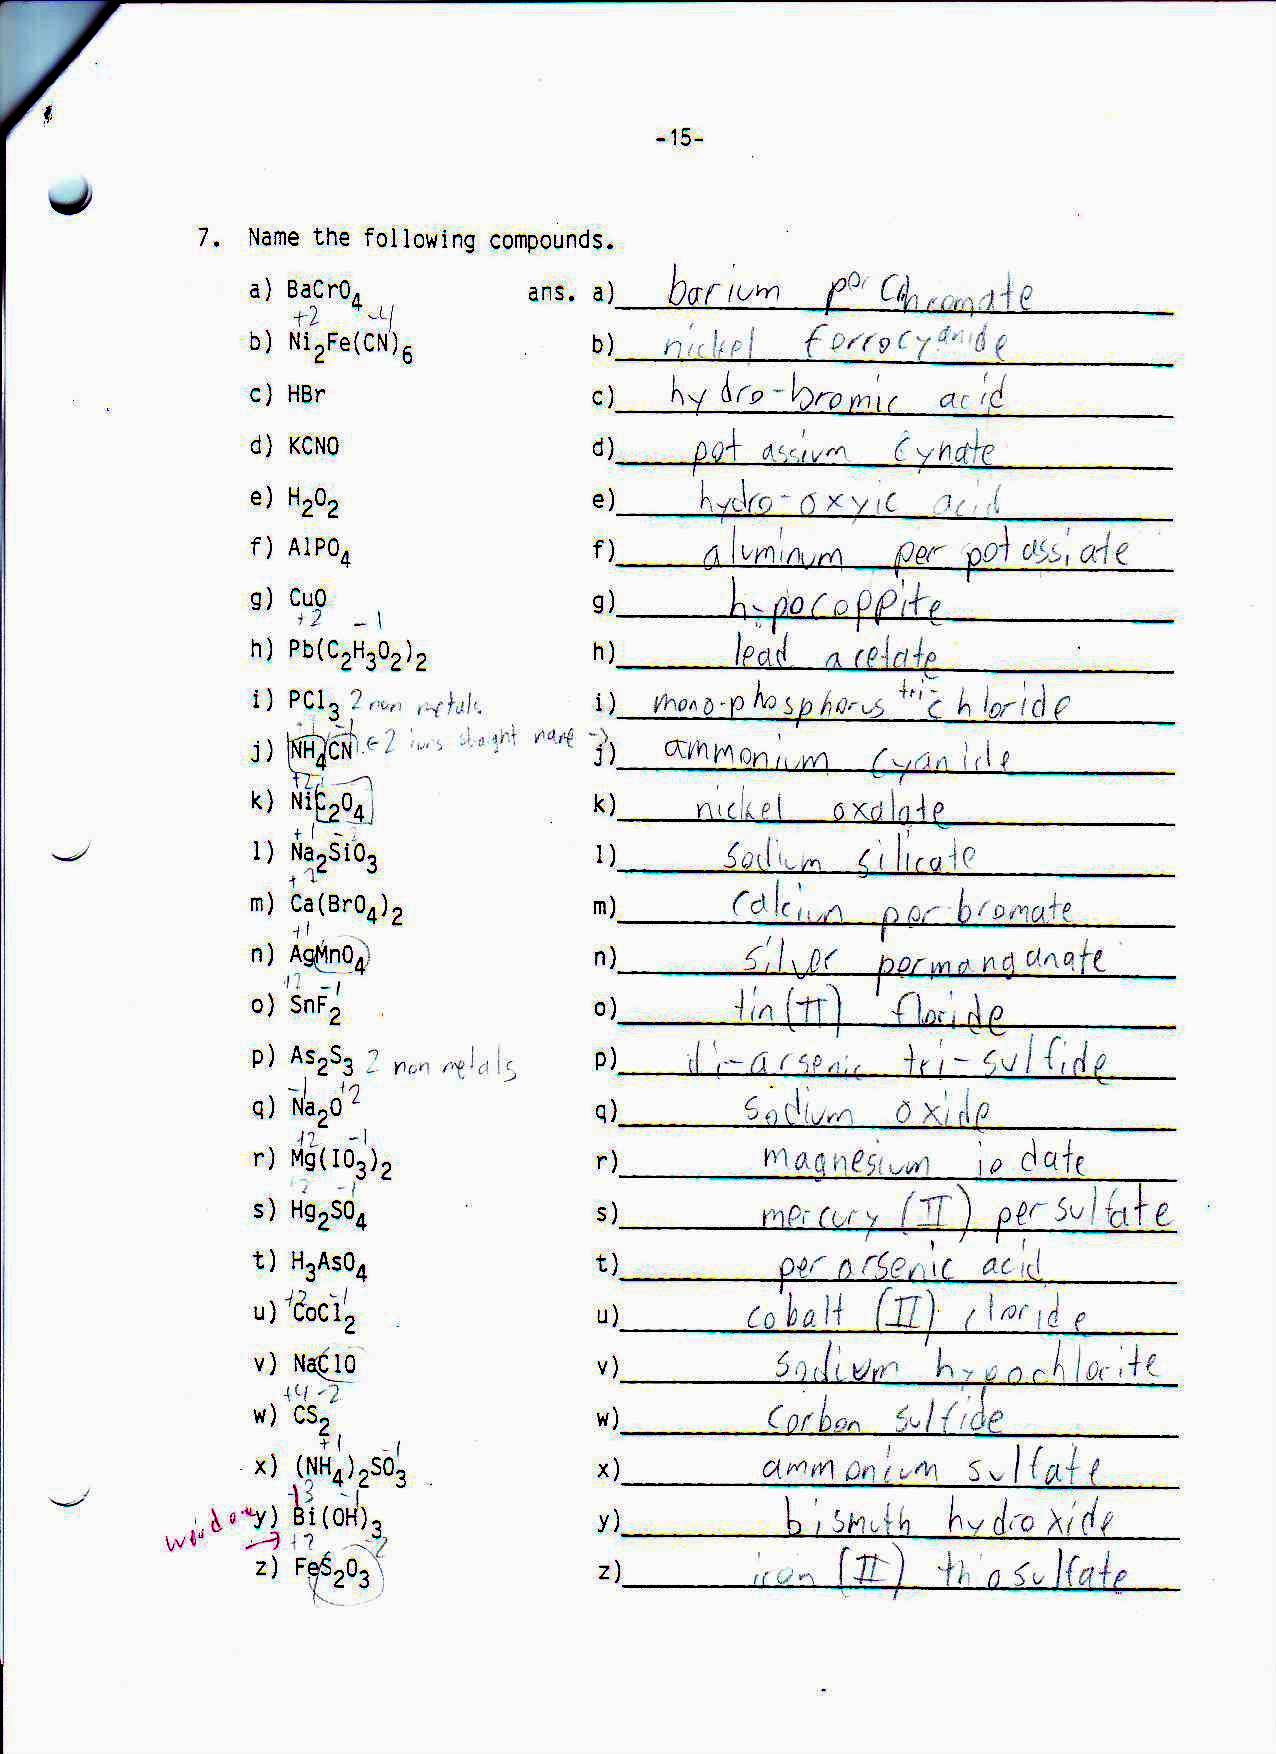 -15-
7. Name the following compounds.
a) BaCrO4 ans. a) barium per chromate
+2 -4
b) Ni2Fe(CN)6 b) nickel ferrocyanide
c) HBr c) hydro-bromic acid
d) KCNO d) potassium cynate
e) H2O2 e) hydro-oxyic acid
f) AlPO4 f) aluminum per potassiate
g) CuO g) hypocoppite
+2 -1
h) Pb(C2H3O2)2 h) lead acetate
i) PCl3 2 non metals i) mono-phosphorus tri-chloride
+1 -1
j) NH4CN ← 2 ions straight name → j) ammonium cyanide
+2
k) NiC2O4 k) nickel oxalate
+1 -
l) Na2SiO3 l) sodium silicate
+2
m) Ca(BrO4)2 m) calcium per-bromate
+1
n) AgMnO4 n) silver permanganate
+2 -1
o) SnF2 o) tin (II) floride
p) As2S3 2 non metals p) di-arsenic tri-sulfide
-1 +2
q) Na2O 2 q) sodium oxide
+2 -1
r) Mg(IO3)2 r) magnesium iodate
+2 -1
s) Hg2SO4 s) mercury (II) persulfate
t) H3AsO4 t) per arsenic acid
+2 -1
u) CoCl2 u) cobalt (II) cloride
v) NaClO v) sodium hypochlorite
+4 -2
w) CS2 w) carbon sulfide
+1 -1
x) (NH4)2SO3 x) ammonium sulfate
+3 -1
y) Bi(OH)3 y) bismuth hydroxide
→ +2 -2
z) FeS2O3 z) iron (II) thiosulfate